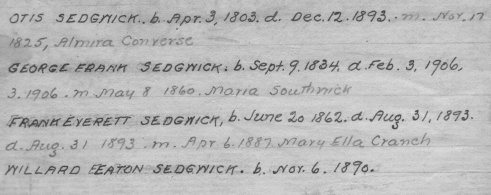 OTIS SEDGWICK. b. Apr. 3, 1803. d. Dec. 12. 1893. m. Nov. 17
1825, Almira Converse
GEORGE FRANK SEDGWICK. b. Sept. 9. 1834. d. Feb. 3, 1906.
3. 1906. m May 8 1860. Maria Southwick
FRANK EVERETT SEDGWICK, b. June 20 1862. d. Aug. 31, 1893.
d. Aug. 31 1893. m. Apr 6. 1887. Mary Ella Cranch
WILLARD FEATON SEDGWICK. b. Nov. 6. 1890.